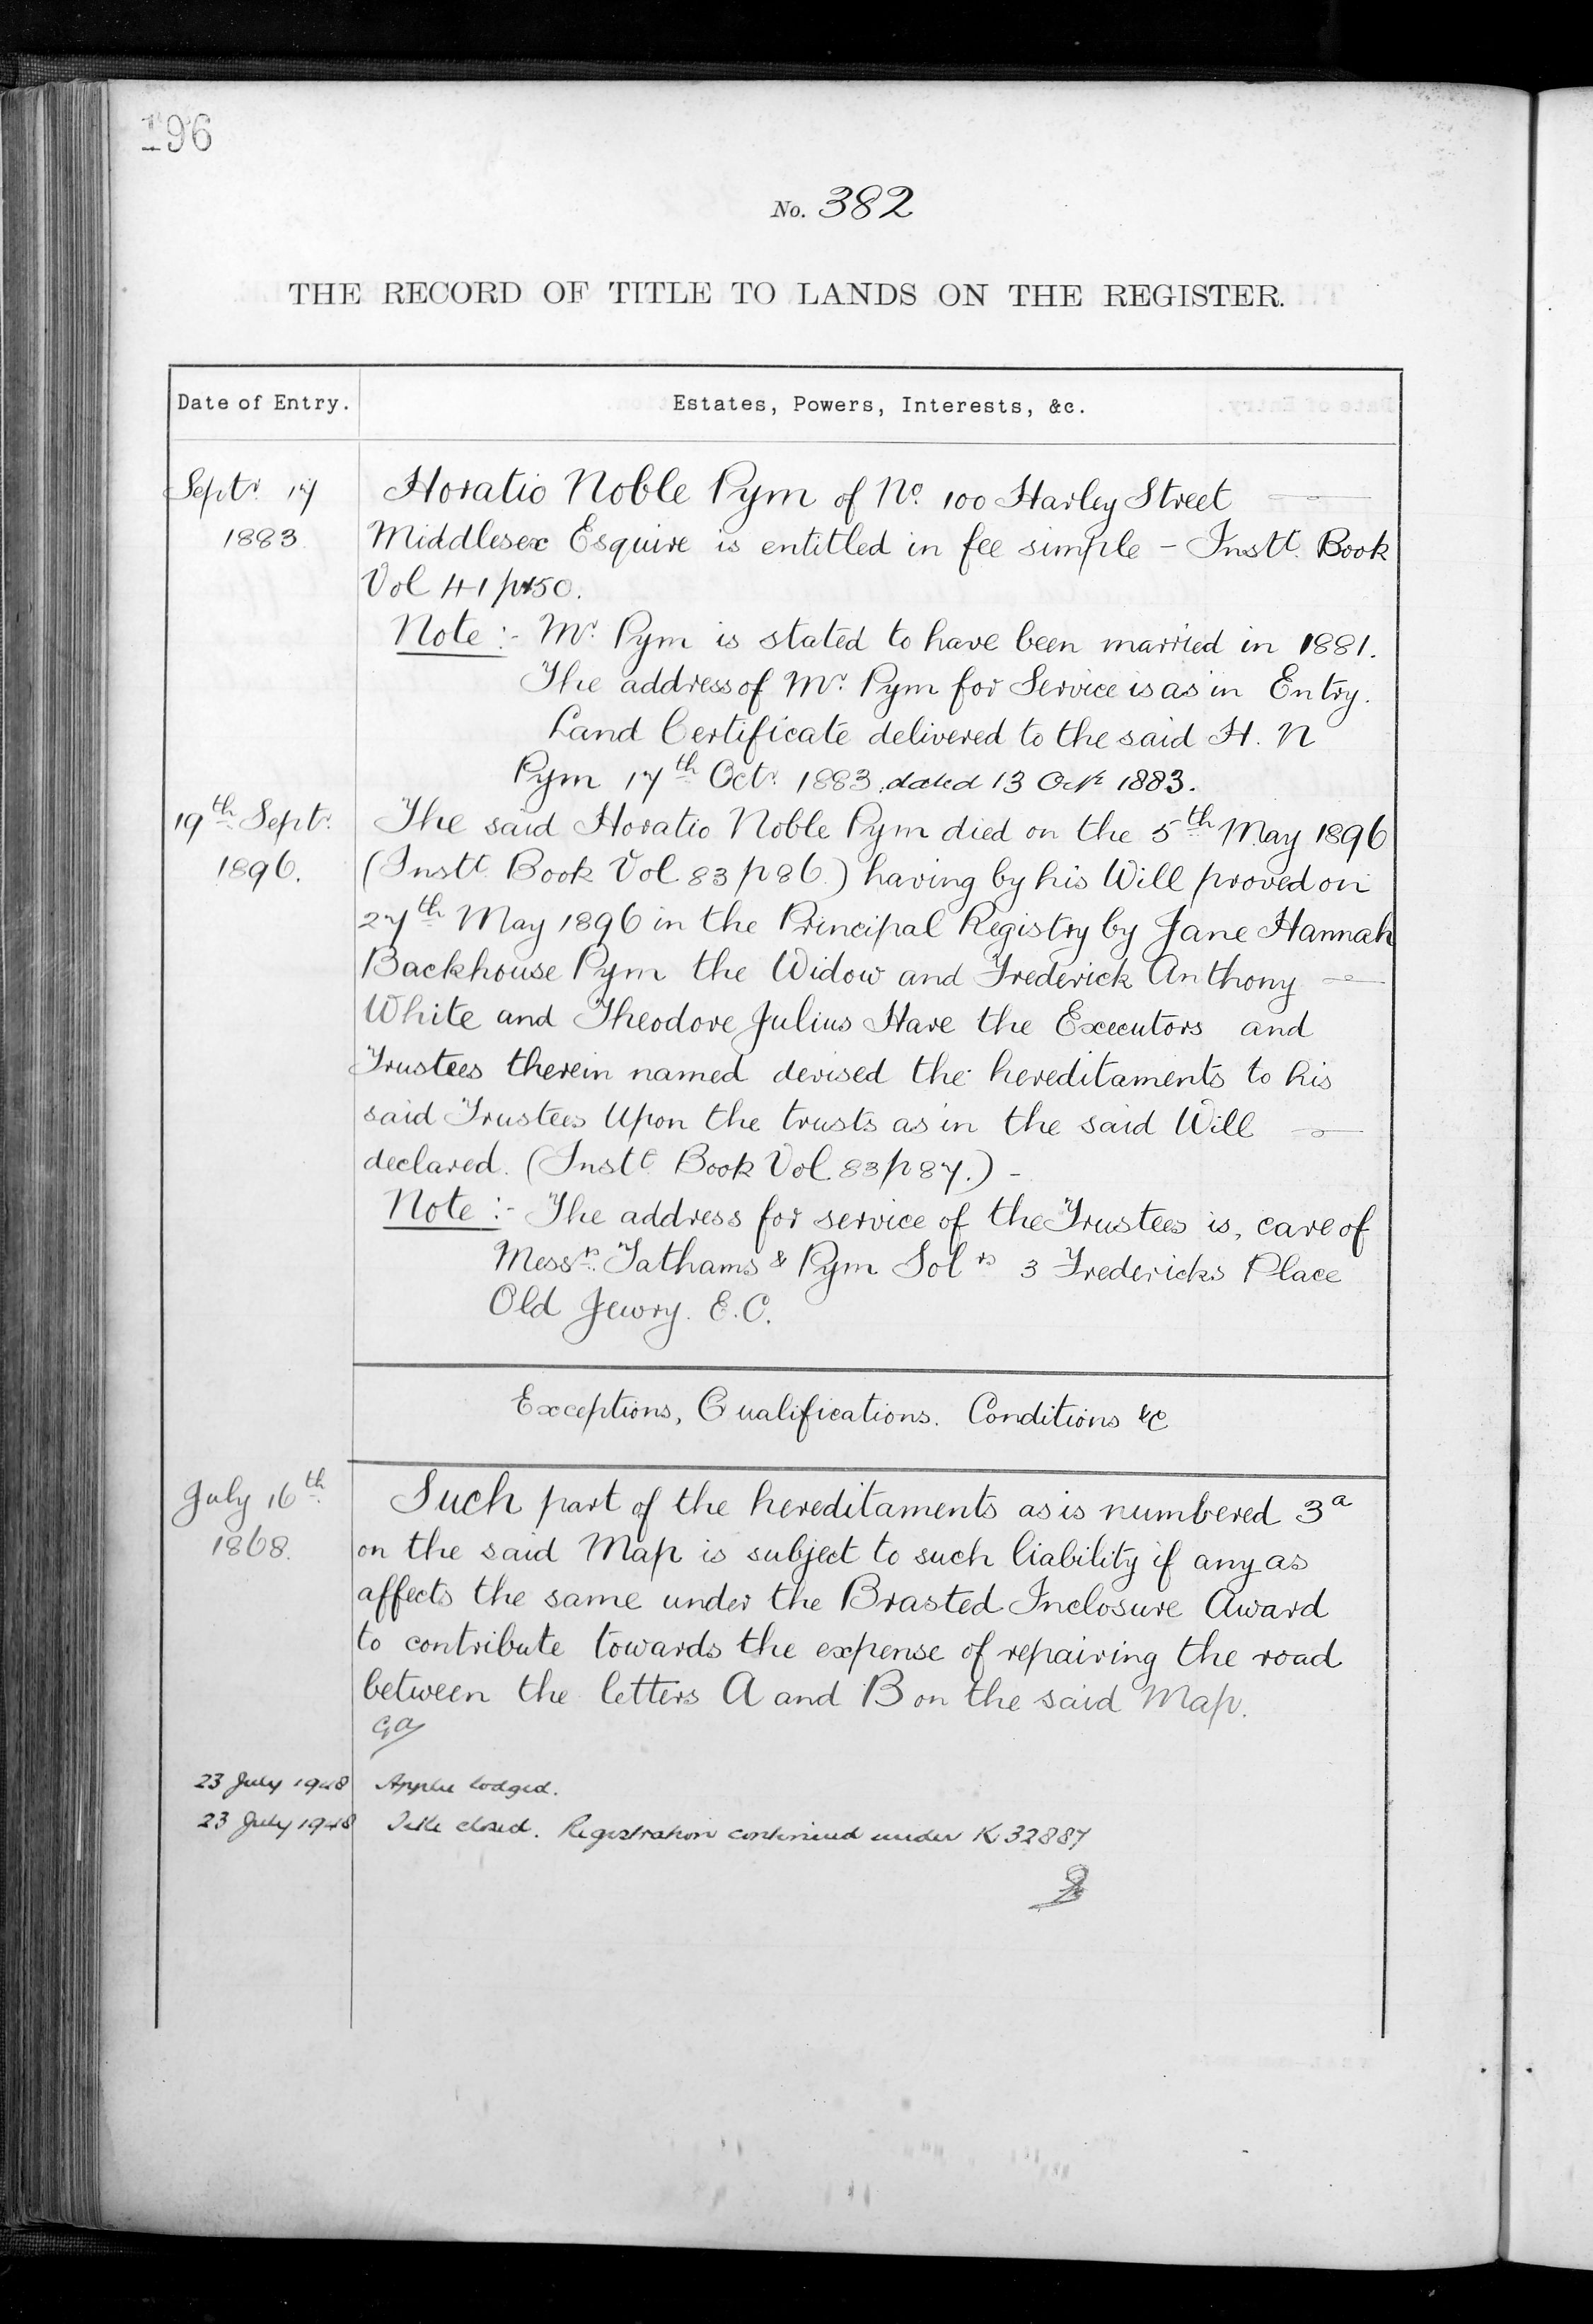 196
No. 382
THE RECORD OF TITLE TO LANDS ON THE REGISTER.
Date of Entry. Estates, Powers, Interests, &c.
Septr. 17 Horatio Noble Pym of No. 100 Harley Street
1883. Middlesex Esquire is entitled in fee simple - Instt. Book
Vol 41 p 150.
Note :- Mr. Pym is stated to have been married in 1881.
The address of Mr. Pym for Service is as in Entry.
Land Certificate delivered to the said H. N
Pym 17th Octr. 1883, dated 13 Octr 1883.
19th Septr. The said Horatio Noble Pym died on the 5th May 1896
1896. (Instt. Book Vol 83 p 86.) having by his Will proved on
27th May 1896 in the Principal Registry by Jane Hannah
Backhouse Pym the Widow and Frederick Anthony
White and Theodore Julius Hare the Executors and
Trustees therein named devised the hereditaments to his
said Trustees Upon the trusts as in the said Will
declared. (Instt. Book Vol 83 p 87.) -
Note :- The address for service of the Trustees is, care of
Messrs. Tathams & Pym Solrs 3 Fredericks Place
Old Jewry. E.C.
Exceptions, Qualifications. Conditions &c
July 16th Such part of the hereditaments as is numbered 3a
1868. on the said Map is subject to such liability if any as
affects the same under the Brasted Inclosure Award
to contribute towards the expense of repairing the road
between the letters A and B on the said Map.
23 July 1948 Applu lodged.
23 July 1948 Title closed. Registration continued under K 32887